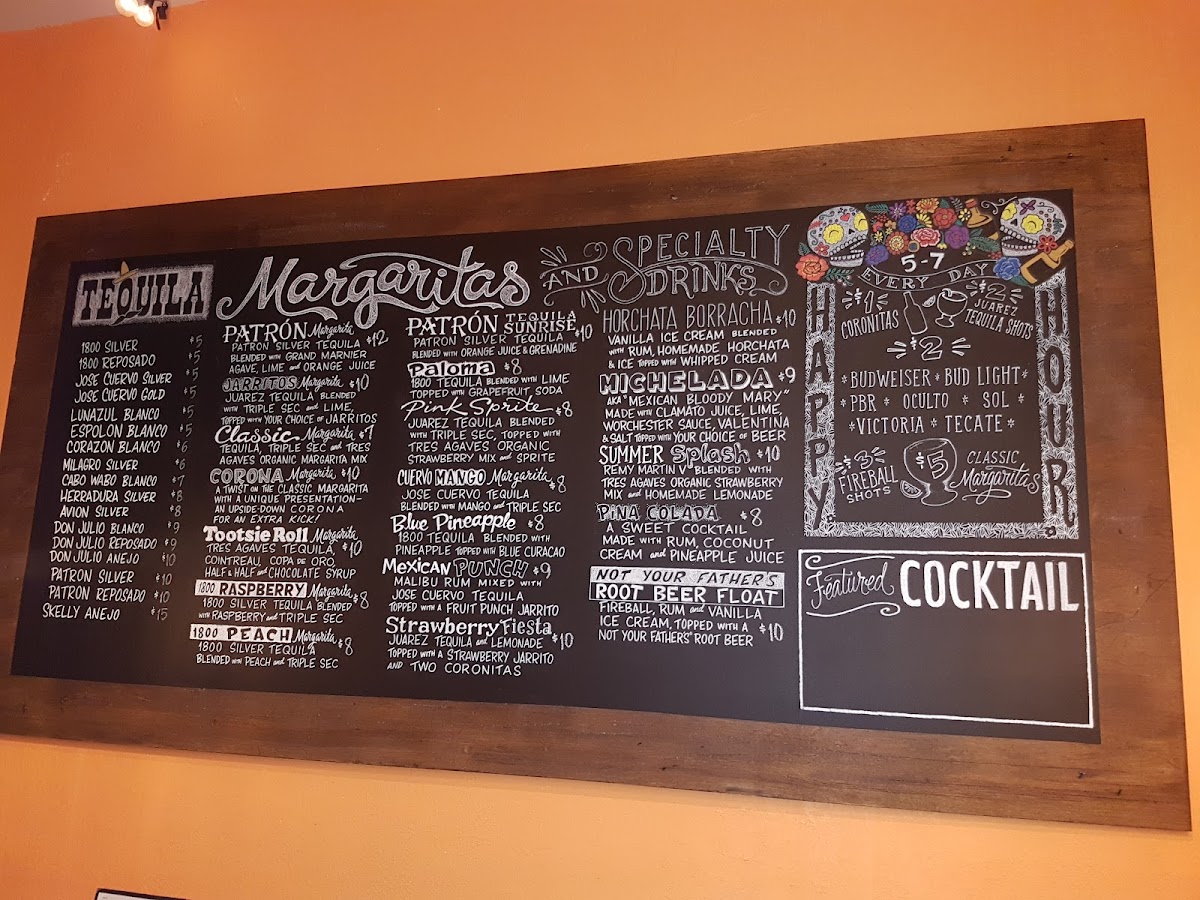 TEQUILA
1800 SILVER $5
1800 REPOSADO $5
JOSE CUERVO SILVER $5
JOSE CUERVO GOLD $5
LUNAZUL BLANCO $5
ESPOLON BLANCO $5
CORAZON BLANCO $6
MILAGRO SILVER $6
CABO WABO BLANCO $7
HERRADURA SILVER $8
AVION SILVER $8
DON JULIO BLANCO $9
DON JULIO REPOSADO $9
DON JULIO ANEJO $10
PATRON SILVER $10
PATRON REPOSADO $10
SKELLY ANEJO $15
Margaritas
AND SPECIALTY
DRINKS
PATRÓN Margarita $12
PATRON SILVER TEQUILA
BLENDED WITH GRAND MARNIER
AGAVE, LIME and ORANGE JUICE
JARRITOS Margarita $10
JUAREZ TEQUILA BLENDED
WITH TRIPLE SEC and LIME,
TOPPED WITH YOUR CHOICE OF JARRITOS
Classic Margarita $7
TEQUILA, TRIPLE SEC and TRES
AGAVES ORGANIC MARGARITA MIX
CORONA Margarita $10
A TWIST ON THE CLASSIC MARGARITA
WITH A UNIQUE PRESENTATION-
AN UPSIDE-DOWN CORONA
FOR AN EXTRA KICK!
Tootsie Roll Margarita $10
TRES AGAVES TEQUILA,
COINTREAU, COPA DE ORO,
HALF & HALF and CHOCOLATE SYRUP
1800 RASPBERRY Margarita $8
1800 SILVER TEQUILA BLENDED
WITH RASPBERRY and TRIPLE SEC
1800 PEACH Margarita $8
1800 SILVER TEQUILA
BLENDED WITH PEACH and TRIPLE SEC
PATRÓN TEQUILA SUNRISE $10
PATRON SILVER TEQUILA
BLENDED WITH ORANGE JUICE & GRENADINE
Paloma $8
1800 TEQUILA BLENDED WITH LIME
TOPPED WITH GRAPEFRUIT SODA
Pink Sprite $8
JUAREZ TEQUILA BLENDED
WITH TRIPLE SEC, TOPPED WITH
TRES AGAVES ORGANIC
STRAWBERRY MIX and SPRITE
CUERVO MANGO Margarita $8
JOSE CUERVO TEQUILA
BLENDED WITH MANGO and TRIPLE SEC
Blue Pineapple $8
1800 TEQUILA BLENDED WITH
PINEAPPLE TOPPED WITH BLUE CURACAO
Mexican PUNCH $9
MALIBU RUM MIXED WITH
JOSE CUERVO TEQUILA
TOPPED WITH A FRUIT PUNCH JARRITO
Strawberry Fiesta $10
JUAREZ TEQUILA and LEMONADE
TOPPED WITH A STRAWBERRY JARRITO
AND TWO CORONITAS
HORCHATA BORRACHA $10
VANILLA ICE CREAM BLENDED
WITH RUM, HOMEMADE HORCHATA
& ICE TOPPED WITH WHIPPED CREAM
MICHELADA $9
AKA "MEXICAN BLOODY MARY"
MADE WITH CLAMATO JUICE, LIME,
WORCHESTER SAUCE, VALENTINA
& SALT TOPPED WITH YOUR CHOICE OF BEER
SUMMER Splash $10
REMY MARTIN V BLENDED WITH
TRES AGAVES ORGANIC STRAWBERRY
MIX and HOMEMADE LEMONADE
PINA COLADA $8
A SWEET COCKTAIL
MADE WITH RUM, COCONUT
CREAM and PINEAPPLE JUICE
NOT YOUR FATHER'S
ROOT BEER FLOAT
FIREBALL, RUM and VANILLA
ICE CREAM, TOPPED WITH A
"NOT YOUR FATHERS" ROOT BEER $10
5-7
EVERY DAY
HAPPY
HOUR
$1
CORONITAS
$2
JUAREZ
TEQUILA SHOTS
$2
* BUDWEISER * BUD LIGHT *
* PBR * OCULTO * SOL *
* VICTORIA * TECATE *
$3
FIREBALL
SHOTS
$5
CLASSIC
Margaritas
Featured COCKTAIL